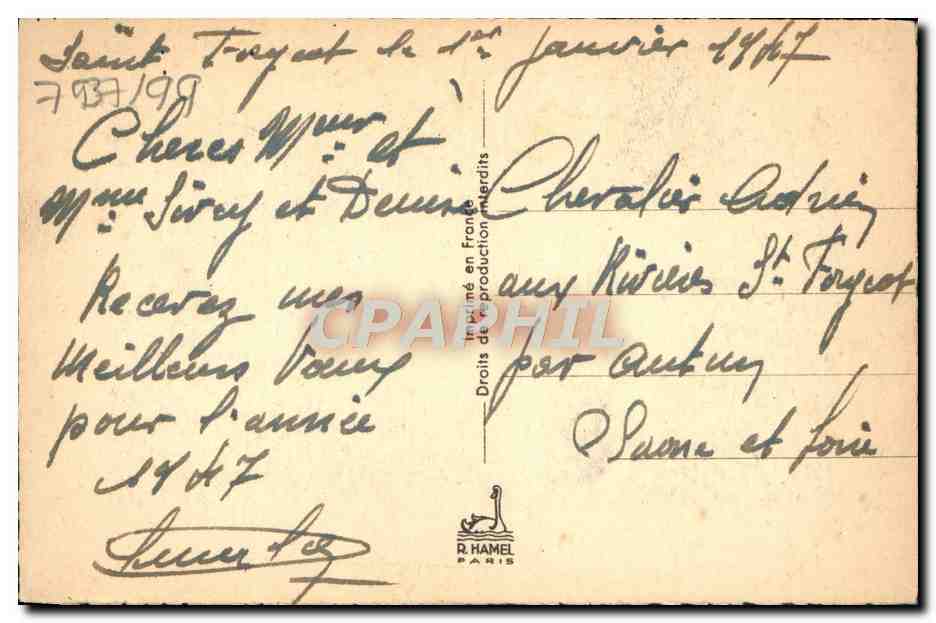 Saint Forgeot le 1er Janvier 1947
797/99
Chers Meur et
Mme Sivry et Denise
Recevez mes
Meilleurs Vœux
pour l'année
1947
Imprimé en France
Droits de reproduction interdits
Chevalier Adrien
aux Rivières St Forgeot
par Autun
Saone et Loire
CPAPHIL
R. HAMEL
PARIS